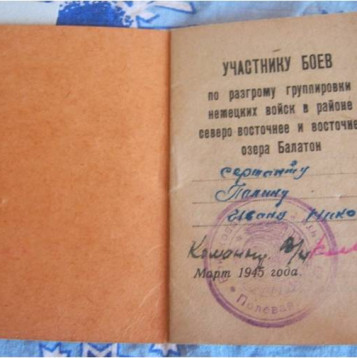 УЧАСТНИКУ БОЕВ
по разгрому группировки
немецких войск в районе
северо восточнее и восточнее
озера Балатон
сержанту
Палину
Ивану Нико
Март 1945 года
Полевая